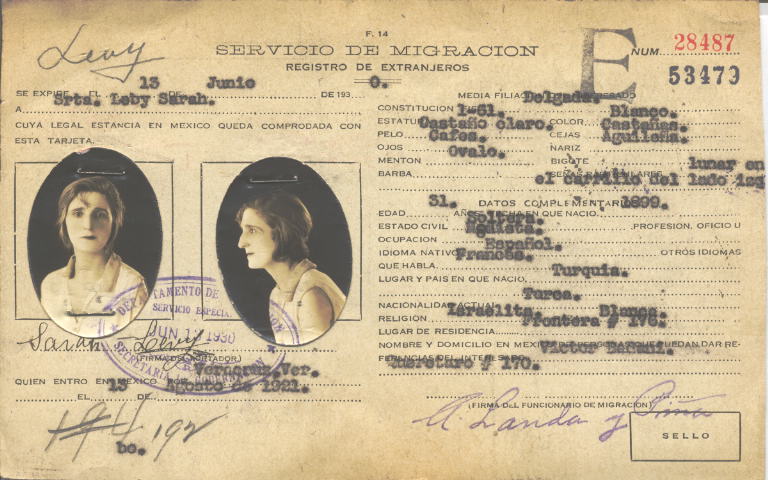 Levy
F. 14
SERVICIO DE MIGRACION
REGISTRO DE EXTRANJEROS
E
NUM. 28487
53479
SE EXPIDE EL 13 DE Junio DE 193 0.
A Srta. Leby Sarah.
CUYA LEGAL ESTANCIA EN MEXICO QUEDA COMPROBADA CON
ESTA TARJETA.
Sarah Levy
(FIRMA DEL PORTADOR)
QUIEN ENTRO EN MEXICO POR Veracruz, Ver.
EL 13 DE Agosto de 1921.
192
bo.
DEPARTAMENTO DE
SERVICIO ESPECIAL
JUN 1930
SECRETARIA
MEDIA FILIACION
CONSTITUCION Delgada.
ESTATURA 1-61. COLOR Blanco.
PELO Castaño claro. CEJAS Castañas.
OJOS Cafes. NARIZ Aguileña.
MENTON Ovalo. BIGOTE
BARBA SEÑAS PARTICULARES lunar en
el carrillo del lado izq
DATOS COMPLEMENTARIOS
EDAD 31. AÑOS. FECHA EN QUE NACIO 1899.
ESTADO CIVIL Soltera. PROFESION, OFICIO U
OCUPACION Modista.
IDIOMA NATIVO Español. OTROS IDIOMAS
QUE HABLA Frances.
LUGAR Y PAIS EN QUE NACIO Turquia.
NACIONALIDAD ACTUAL Turca.
RELIGION Israelita. Blanca.
LUGAR DE RESIDENCIA Frontera # 176.
NOMBRE Y DOMICILIO EN MEXICO DE PERSONAS QUE PUEDAN DAR RE-
FERENCIAS DEL INTERESADO Victor
Queretaro # 170.
A. Landa y Piña
(FIRMA DEL FUNCIONARIO DE MIGRACION)
SELLO